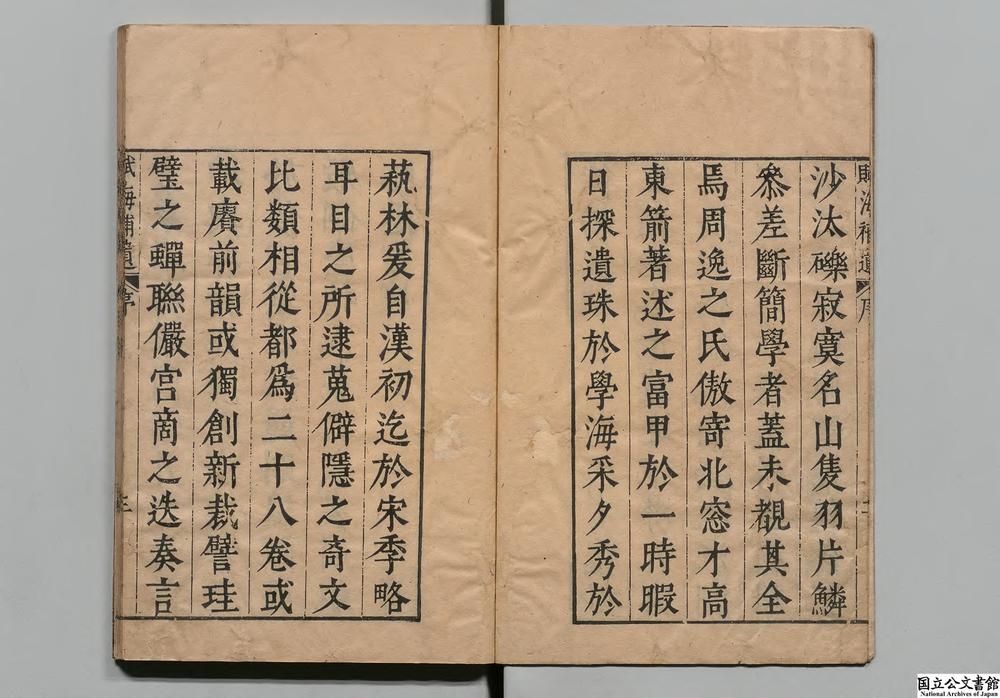 賦海補遺 序 二
沙汰礫寂寞名山隻羽片鱗
叅差斷簡學者蓋未覩其全
焉周逸之氏傲寄北窓才高
東箭著述之富甲於一時暇
日探遺珠於學海采夕秀於
蓺林爰自漢初迄於宋季略
耳目之所逮蒐僻隱之竒文
比類相從都爲二十八卷或
載賡前韻或獨創新裁譬珪
璧之蟬聮儼宫商之迭奏言
賦海補遺 序 三
国立公文書館
National Archives of Japan